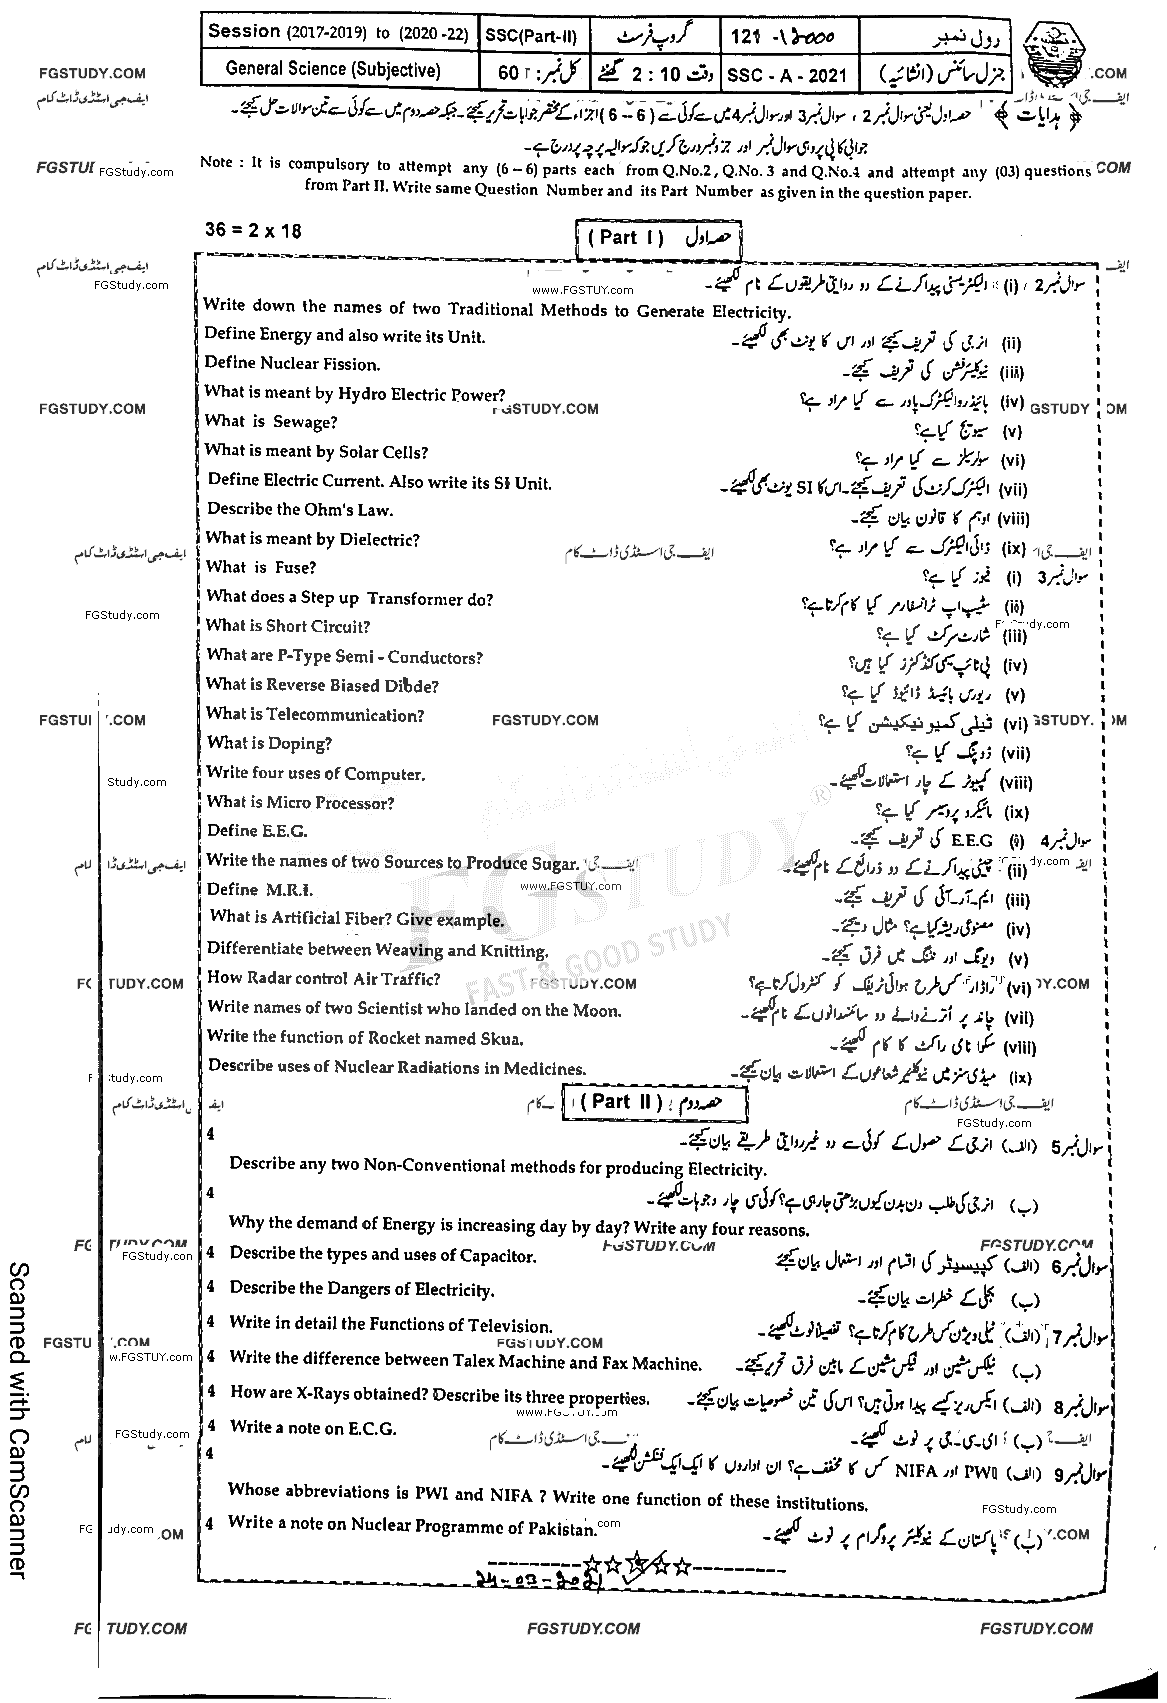 Session (2017-2019) to (2020-22) SSC(Part-II) گروپ فرسٹ 121 -12000 رول نمبر
General Science (Subjective) کل نمبر: 60 وقت 2 : 10 گھنٹے SSC - A - 2021 جنرل سائنس (انشائیہ)
﴿ ہدایات ﴾ حصہ اول یعنی سوال نمبر 2 ، سوال نمبر 3 اور سوال نمبر 4 میں سے کوئی سے (6 – 6) اجزاء کے مختصر جوابات تحریر کیجئے۔ جبکہ حصہ دوم میں سے کوئی سے تین سوالات حل کیجئے۔
جوابی کاپی پر وہی سوال نمبر اور جزو نمبر درج کریں جو کہ سوالیہ پرچہ پر درج ہے۔
Note : It is compulsory to attempt any (6 – 6) parts each from Q.No.2, Q.No. 3 and Q.No.4 and attempt any (03) questions
from Part II. Write same Question Number and its Part Number as given in the question paper.
36 = 2 x 18 (Part I) حصہ اول
سوال نمبر 2 (i) الیکٹریسٹی پیدا کرنے کے دو روایتی طریقوں کے نام لکھیئے۔
Write down the names of two Traditional Methods to Generate Electricity.
Define Energy and also write its Unit. (ii) انرجی کی تعریف کیجئے اور اس کا یونٹ بھی لکھیئے۔
Define Nuclear Fission. (iii) نیوکلیئر فشن کی تعریف کیجئے۔
What is meant by Hydro Electric Power? (iv) ہائیڈرو الیکٹرک پاور سے کیا مراد ہے؟
What is Sewage? (v) سیویج کیا ہے؟
What is meant by Solar Cells? (vi) سولر سیلز سے کیا مراد ہے؟
Define Electric Current. Also write its SI Unit. (vii) الیکٹرک کرنٹ کی تعریف کیجئے۔ اس کا SI یونٹ بھی لکھیئے۔
Describe the Ohm's Law. (viii) اوہم کا قانون بیان کیجئے۔
What is meant by Dielectric? (ix) ڈائی الیکٹرک سے کیا مراد ہے؟
What is Fuse? سوال نمبر 3 (i) فیوز کیا ہے؟
What does a Step up Transformer do? (ii) سٹیپ اپ ٹرانسفارمر کیا کام کرتا ہے؟
What is Short Circuit? (iii) شارٹ سرکٹ کیا ہے؟
What are P-Type Semi - Conductors? (iv) پی ٹائپ سیمی کنڈکٹرز کیا ہیں؟
What is Reverse Biased Diode? (v) ریورس بائیسڈ ڈائیوڈ کیا ہے؟
What is Telecommunication? (vi) ٹیلی کمیونیکیشن کیا ہے؟
What is Doping? (vii) ڈوپنگ کیا ہے؟
Write four uses of Computer. (viii) کمپیوٹر کے چار استعمالات لکھیئے۔
What is Micro Processor? (ix) مائیکرو پروسیسر کیا ہے؟
Define E.E.G. سوال نمبر 4 (i) E.E.G کی تعریف کیجئے۔
Write the names of two Sources to Produce Sugar. (ii) چینی پیدا کرنے کے دو ذرائع کے نام لکھیئے۔
Define M.R.I. (iii) ایم۔آر۔آئی کی تعریف کیجئے۔
What is Artificial Fiber? Give example. (iv) مصنوعی ریشہ کیا ہے؟ مثال دیجئے۔
Differentiate between Weaving and Knitting. (v) ویونگ اور نٹنگ میں فرق کیجئے۔
How Radar control Air Traffic? (vi) راڈار کس طرح ہوائی ٹریفک کو کنٹرول کرتا ہے؟
Write names of two Scientist who landed on the Moon. (vii) چاند پر اُترنے والے دو سائنسدانوں کے نام لکھیئے۔
Write the function of Rocket named Skua. (viii) سکوا نامی راکٹ کا کام لکھیئے۔
Describe uses of Nuclear Radiations in Medicines. (ix) میڈیسنز میں نیوکلیئر شعاعوں کے استعمالات بیان کیجئے۔
(Part II) حصہ دوم
4 سوال نمبر 5 (الف) انرجی کے حصول کے کوئی سے دو غیر روایتی طریقے بیان کیجئے۔
Describe any two Non-Conventional methods for producing Electricity.
4 (ب) انرجی کی طلب دن بدن کیوں بڑھتی جا رہی ہے؟ کوئی سی چار وجوہات لکھیئے۔
Why the demand of Energy is increasing day by day? Write any four reasons.
4 Describe the types and uses of Capacitor. سوال نمبر 6 (الف) کپیسیٹر کی اقسام اور استعمال بیان کیجئے
4 Describe the Dangers of Electricity. (ب) بجلی کے خطرات بیان کیجئے۔
4 Write in detail the Functions of Television. سوال نمبر 7 (الف) ٹیلی ویژن کس طرح کام کرتا ہے؟ تفصیلاً نوٹ لکھیئے۔
4 Write the difference between Talex Machine and Fax Machine. (ب) ٹیلکس مشین اور فیکس مشین کے مابین فرق تحریر کیجئے۔
4 How are X-Rays obtained? Describe its three properties. سوال نمبر 8 (الف) ایکس ریز کیسے پیدا ہوتی ہیں؟ اس کی تین خصوصیات بیان کیجئے۔
4 Write a note on E.C.G. (ب) ای-سی-جی پر نوٹ لکھیئے۔
4 سوال نمبر 9 (الف) PWI اور NIFA کس کا مخفف ہے؟ ان اداروں کا ایک ایک فنکشن لکھیئے۔
Whose abbreviations is PWI and NIFA ? Write one function of these institutions.
4 Write a note on Nuclear Programme of Pakistan. (ب) پاکستان کے نیوکلیئر پروگرام پر نوٹ لکھیئے۔
24-03-2021
FGSTUDY.COM
FGSTUDY.COM
FGSTUDY.COM
Scanned with CamScanner
FGSTUDY
FAST & GOOD STUDY